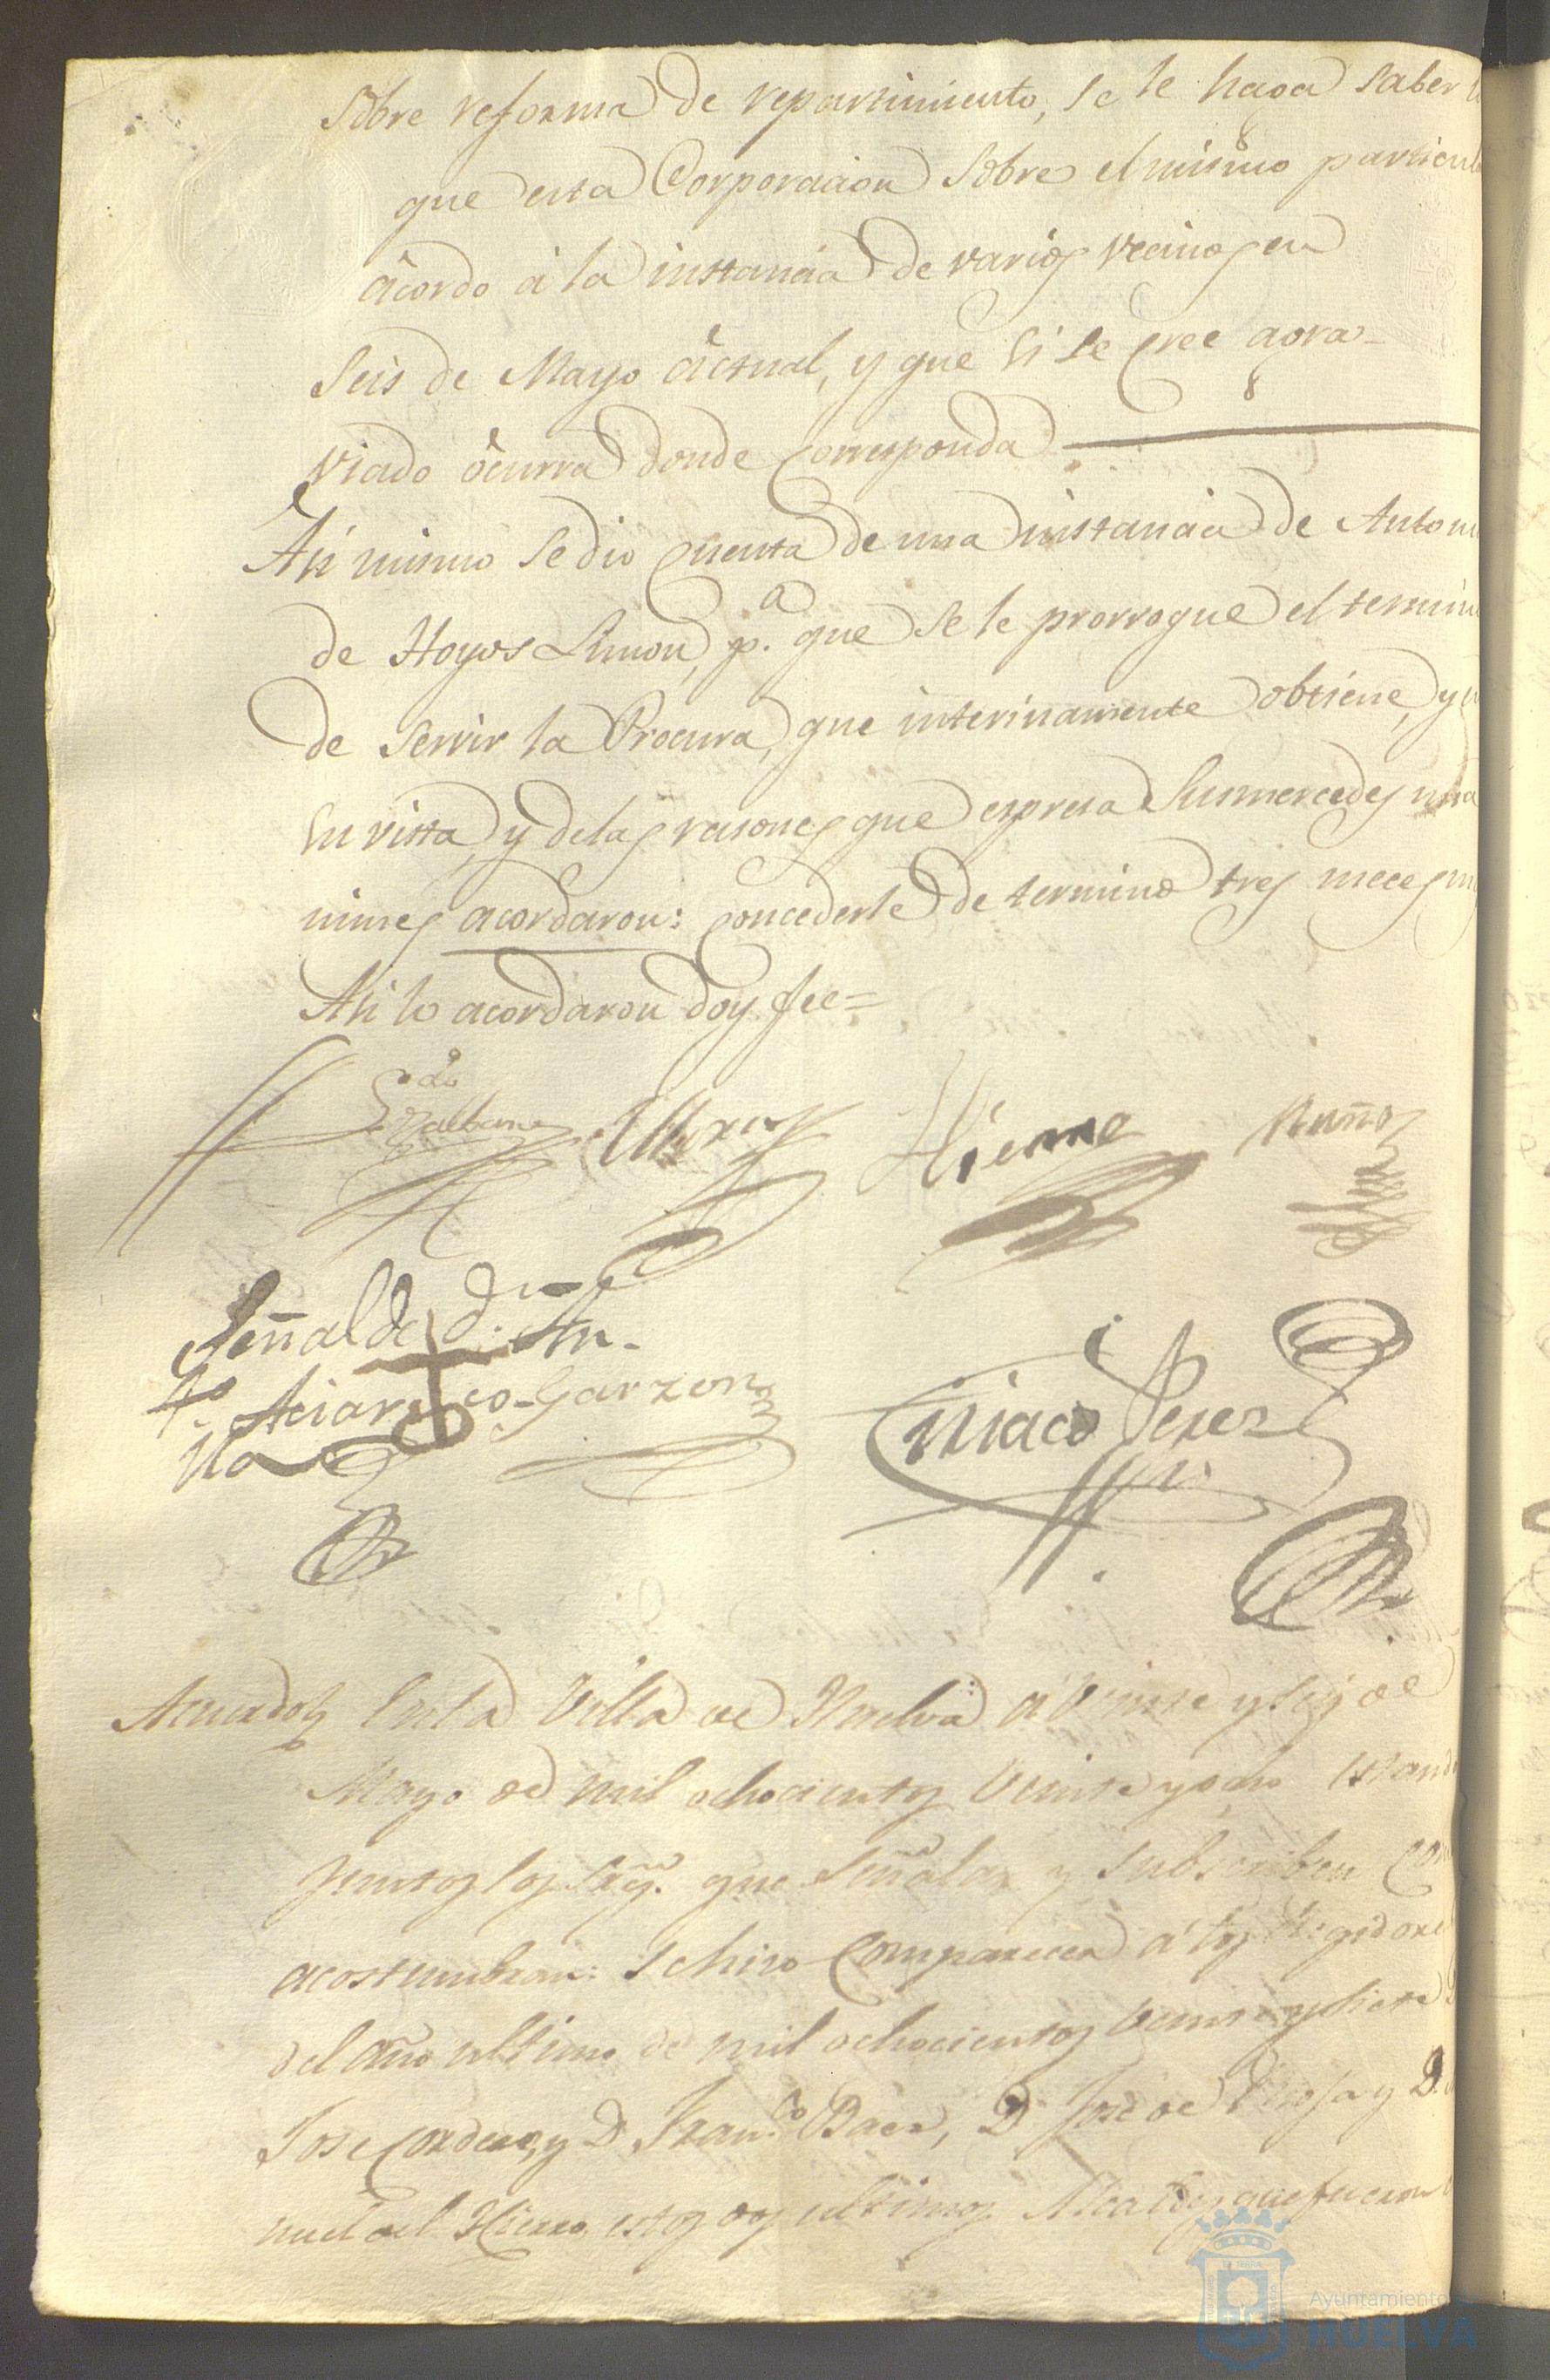 Sobre reforma de repartimiento, se le haga saber lo
que esta Corporacion sobre el mismo particul
acordo á la instancia de varios vecinos en
Seis de Mayo actual, y que si se cree agra-
viado ocurra donde corresponda
Asi mismo se dio cuenta de una instancia de Antoni
de Hoyos Limon, p.a que se le prorrogue el termin
de servir la Procura, que interinamente obtiene, y
su vista, y de las rasones que expresa Susmercedes una
nimes acordaron: concederle de termino tres meces m
Asi lo acordaron doy fee=
Hierro Muñoz
Señal de D. An.
to Garzon
Ciriaco Perez
Acuerdos En la Villa de Huelva á Veinte y seis de
Mayo de mil ochocientos Veinte y ocho estand
juntos los Sres. que Señalan y subscriben Con
acostumbran: se hiso comparecer á los Regidores
del año ultimo de mil ochocientos Veinte y siete
Jose Cordero, y D Fran.co Baez, D. Jose de y D.
nuel del Hierro estos dos ultimos Alcaldes que fueron
Ayuntamiento de
HUELVA